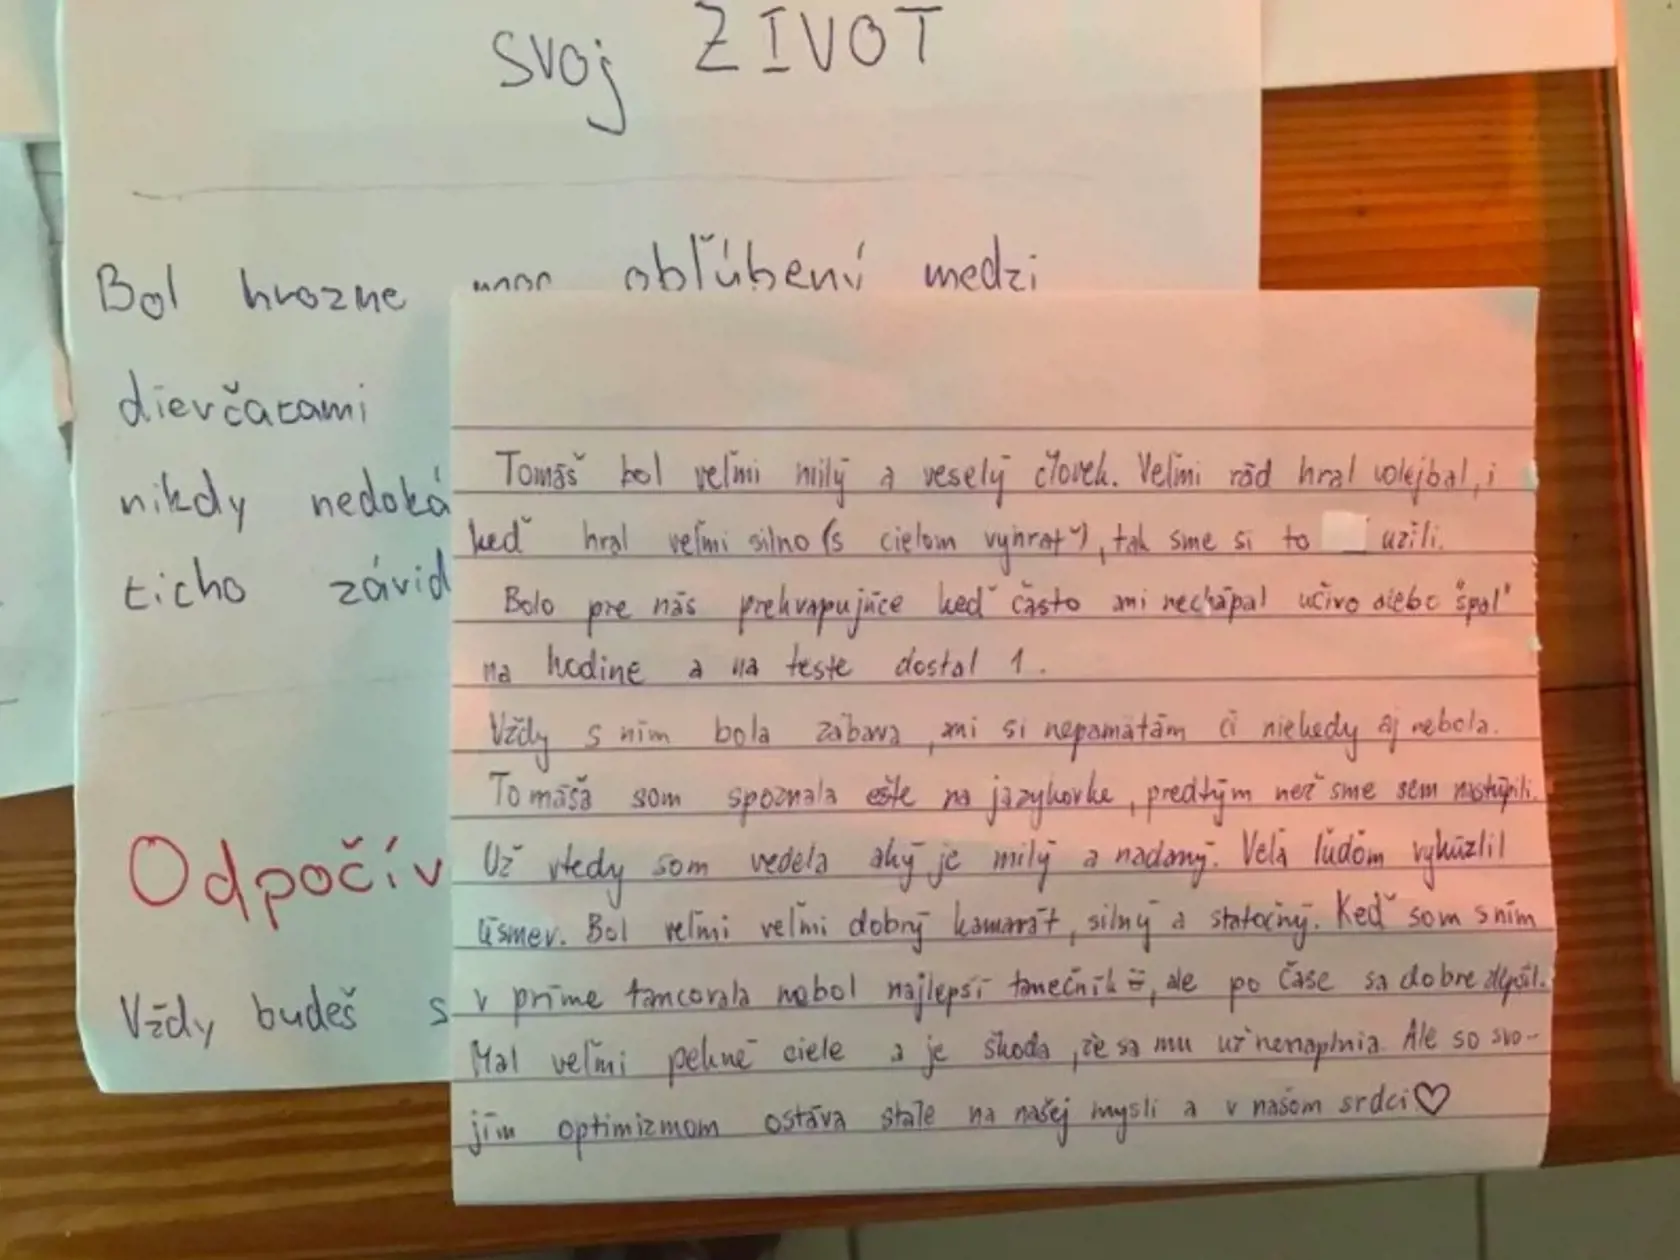 svoj ŽIVOT
Bol hrozne moc obľúbený medzi
dievčatami
nikdy nedoká
ticho závid
Odpočív
Vždy budeš s
Tomáš bol veľmi milý a veselý človek. Veľmi rád hral volejbal, i
keď hral veľmi silno (s cielom vyhrať), tak sme si to užili.
Bolo pre nás prekvapujúce keď často ani nechápal učivo alebo "spal"
na hodine a na teste dostal 1.
Vždy s ním bola zábava, ani si nepamätám či niekedy aj nebola.
Tomáša som spoznala ešte na jazykovke, predtým než sme sem nastúpili.
Už vtedy som vedela aký je milý a nadaný. Veľa ľuďom vykúzlil
úsmev. Bol veľmi veľmi dobrý kamarát, silný a statočný. Keď som s ním
v príme tancovala nebol najlepší tanečník, ale po čase sa dobre zlepšil.
Mal veľmi pekné ciele a je škoda, že sa mu už nenaplnia. Ale so svo-
jím optimizmom ostáva stále na našej mysli a v našom srdci ♡